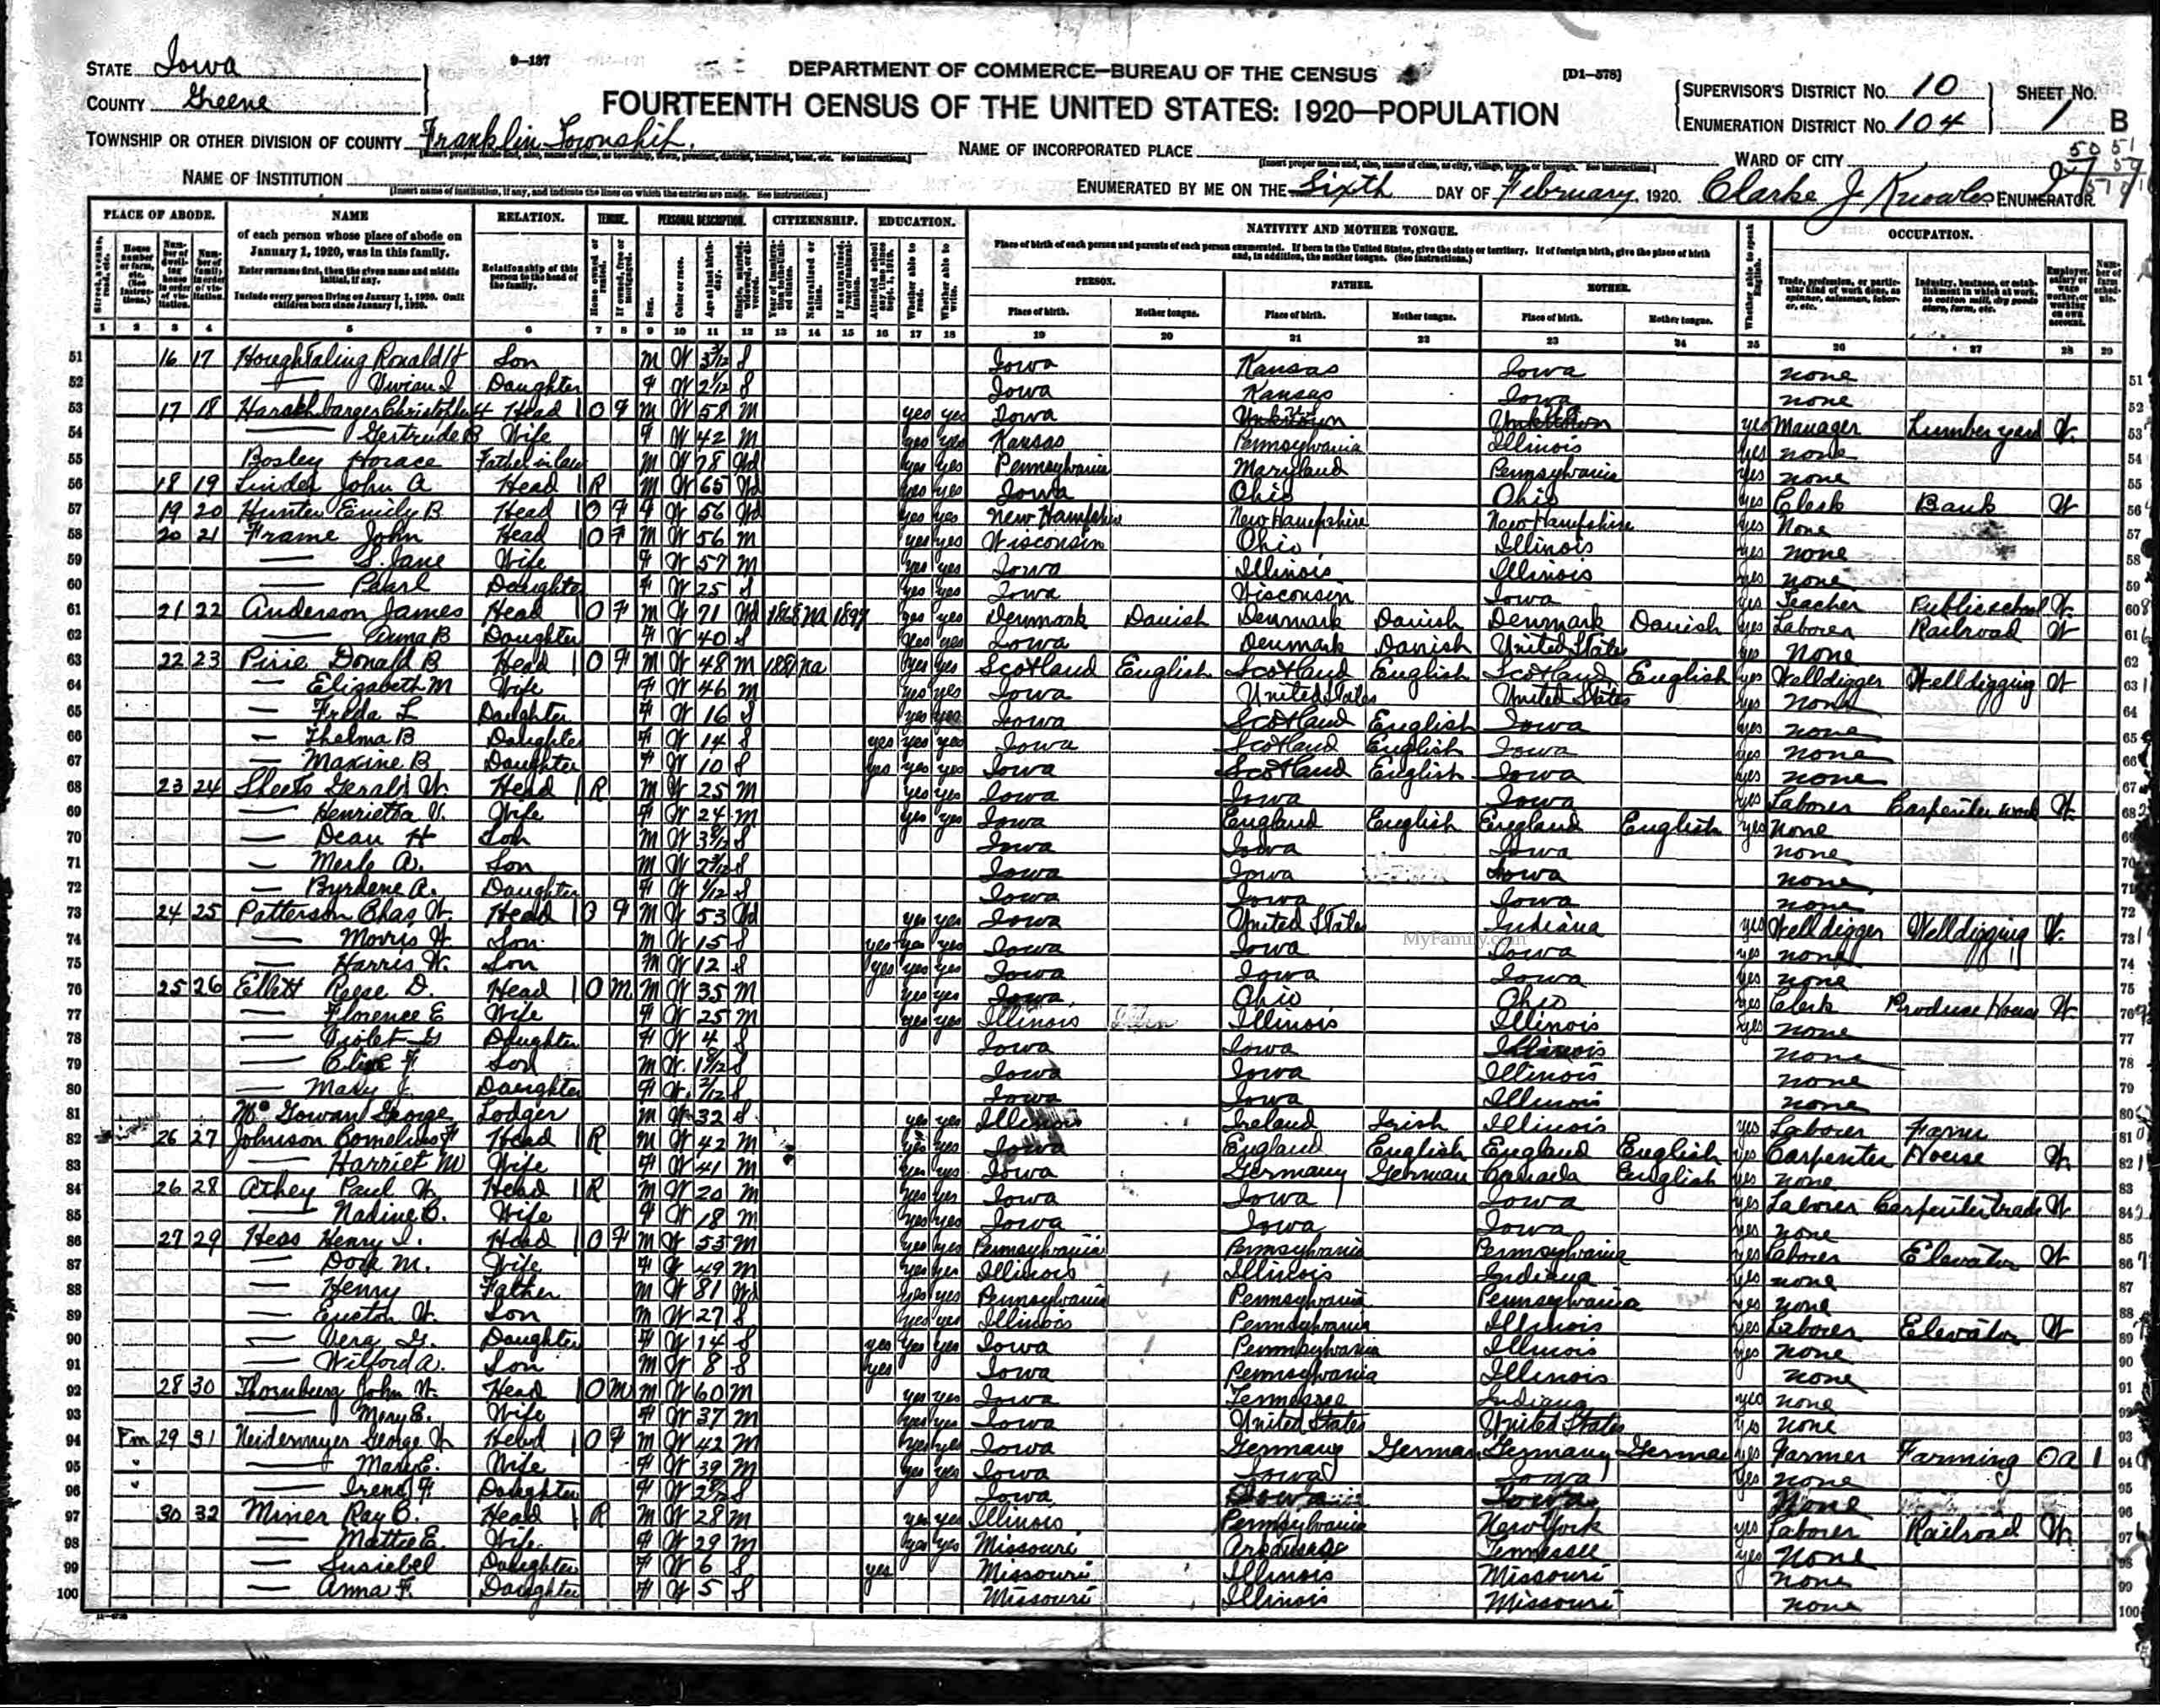 STATE Iowa
COUNTY Greene
9-137
DEPARTMENT OF COMMERCE—BUREAU OF THE CENSUS
[D1—578]
FOURTEENTH CENSUS OF THE UNITED STATES: 1920—POPULATION
SUPERVISOR'S DISTRICT No. 10
ENUMERATION DISTRICT No. 104
SHEET No. 1 B
TOWNSHIP OR OTHER DIVISION OF COUNTY Franklin Township.
NAME OF INCORPORATED PLACE
WARD OF CITY
NAME OF INSTITUTION
ENUMERATED BY ME ON THE Sixth DAY OF February, 1920. Clarke J Knowles ENUMERATOR.
PLACE OF ABODE. NAME RELATION. TENURE. PERSONAL DESCRIPTION. CITIZENSHIP. EDUCATION. NATIVITY AND MOTHER TONGUE. OCCUPATION.
of each person whose place of abode on January 1, 1920, was in this family.
PERSON. FATHER. MOTHER.
Place of birth. Mother tongue. Place of birth. Mother tongue. Place of birth. Mother tongue.
1 2 3 4 5 6 7 8 9 10 11 12 13 14 15 16 17 18 19 20 21 22 23 24 25 26 27 28 29
51 16 17 Houghtaling Ronald H Son M W 3 3/12 S Iowa Kansas Iowa none
52 — Vivian I Daughter F W S Iowa Kansas Iowa none
53 17 18 Head 1 O F M W 58 M yes yes Iowa Unknown Unknown yes Manager Lumber yard W
54 — Gertrude B Wife F W 42 M yes yes Kansas Pennsylvania Illinois yes none
55 Bosley Horace Father in law M W 78 Wd yes yes Pennsylvania Maryland Pennsylvania yes none
56 18 19 Linder John A Head 1 R M W 65 Wd yes yes Iowa Ohio Ohio yes Clerk Bank W
57 19 20 Hunter Emily B Head 1 O F F W 56 Wd yes yes New Hampshire New Hampshire New Hampshire yes None
58 20 21 Frame John Head 1 O F M W 56 M yes yes Wisconsin Ohio Illinois yes none
59 — S. Jane Wife F W 57 M yes yes Iowa Illinois Illinois yes none
60 — Pearl Daughter F W 25 S yes yes Iowa Wisconsin Iowa yes Teacher Public school W
61 21 22 Anderson James Head 1 O F M W 71 Wd 1868 Na 1897 yes yes Denmark Danish Denmark Danish Denmark Danish yes Laborer Railroad W
62 — Anna B Daughter F W 40 S yes yes Iowa Denmark Danish United States yes None
63 22 23 Pirie Donald B Head 1 O F M W 48 M na yes yes Scotland English Scotland English Scotland English yes Welldigger Welldigging W
64 — Elizabeth M Wife F W 46 M yes yes Iowa United States United States yes none
65 — Freda L Daughter F W 16 S yes yes Iowa Scotland English Iowa yes none
66 — Thelma B Daughter F W 14 S yes yes yes Iowa Scotland English Iowa yes none
67 — Maxine B Daughter F W 10 S yes yes yes Iowa Scotland English Iowa yes none
68 23 24 Gerald W. Head 1 R M W 25 M yes yes Iowa Iowa Iowa yes Laborer Carpenter work W
69 — Henrietta V. Wife F W 24 M yes yes Iowa England English England English yes None
70 — Dean H Son M W S Iowa Iowa Iowa none
71 — Merle A. Son M W S Iowa Iowa Iowa none
72 — Byrdene A. Daughter F W 1/12 S Iowa Iowa Iowa none
73 24 25 Patterson Chas W. Head 1 O F M W 53 Wd yes yes Iowa United States Indiana yes Welldigger Welldigging W.
74 — Morris W. Son M W 15 S yes yes yes Iowa Iowa Iowa yes none
75 — Harris W. Son M W 12 S yes yes yes Iowa Iowa Iowa yes none
76 25 26 Ellett Reese D. Head 1 O M M W 35 M yes yes Iowa Ohio Ohio yes Clerk Produce House W
77 — Florence E Wife F W 25 M yes yes Illinois Illinois Illinois yes none
78 — Violet G Daughter F W 4 S Iowa Iowa Illinois none
79 — F Son M W S Iowa Iowa Illinois none
80 — Mary J. Daughter F W 2/12 S Iowa Iowa Illinois none
81 McGowan George Lodger M W 32 S yes yes Illinois Ireland Irish Illinois yes Laborer Farm
82 26 27 Johnson Cornelius F Head 1 R M W 42 M yes yes Iowa England English England English yes Carpenter House W
83 — Harriet M Wife F W 41 M yes yes Iowa Germany German Canada English yes none
84 26 28 Athey Paul W. Head 1 R M W 20 M yes yes Iowa Iowa Iowa yes Laborer Carpenter trade W
85 — Nadine C. Wife F W 18 M yes yes Iowa Iowa Iowa yes none
86 27 29 Hess Henry I. Head 1 O F M W 55 M yes yes Pennsylvania Pennsylvania Pennsylvania yes Laborer Elevator W
87 — Dora M. Wife F W 49 M yes yes Illinois Illinois Indiana yes none
88 — Henry Father M W 81 Wd yes yes Pennsylvania Pennsylvania Pennsylvania yes none
89 — W. Son M W 27 S yes yes Illinois Pennsylvania Illinois yes Laborer Elevator W
90 — Vera G. Daughter F W 14 S yes yes yes Iowa Pennsylvania Illinois yes none
91 — Wilford A. Son M W 8 S yes Iowa Pennsylvania Illinois none
92 28 30 Thornburg John W. Head 1 O M M W 60 M yes yes Iowa Tennessee Indiana yes none
93 — Mary E. Wife F W 37 M yes yes Iowa United States United States yes none
94 Fm 29 31 Neidermyer George W Head 1 O F M W 42 M yes yes Iowa Germany German Germany German yes Farmer Farming OA 1
95 " — Mary E. Wife F W 39 M yes yes Iowa Iowa Iowa yes none
96 " — Irene F Daughter F W S Iowa Iowa Iowa None
97 30 32 Miner Ray C. Head 1 R M W 28 M yes yes Illinois Pennsylvania New York yes Laborer Railroad W
98 — Mattie E. Wife F W 29 M yes yes Missouri Arkansas Tennessee yes None
99 — Susiebel Daughter F W 6 S yes Missouri Illinois Missouri none
100 — Anna F. Daughter F W 5 S Missouri Illinois Missouri none
MyFamily.com